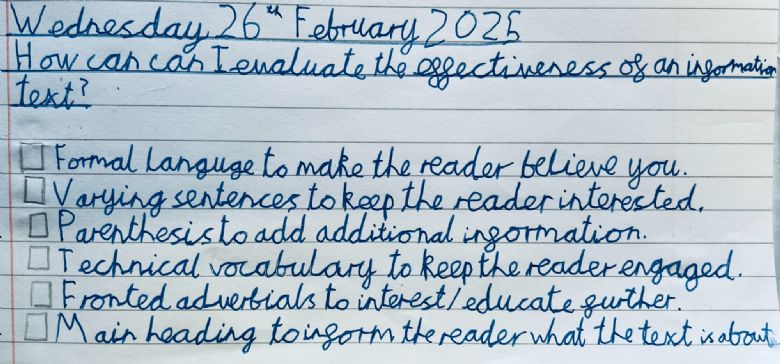 Wednesday 26th February 2025
How can can I evaluate the effectiveness of an information
text?
Formal languge to make the reader believe you.
Varying sentences to keep the reader interested.
Parenthesis to add additional information.
Technical vocabulary to keep the reader engaged.
Fronted adverbials to interest/educate further.
Main heading to inform the reader what the text is about